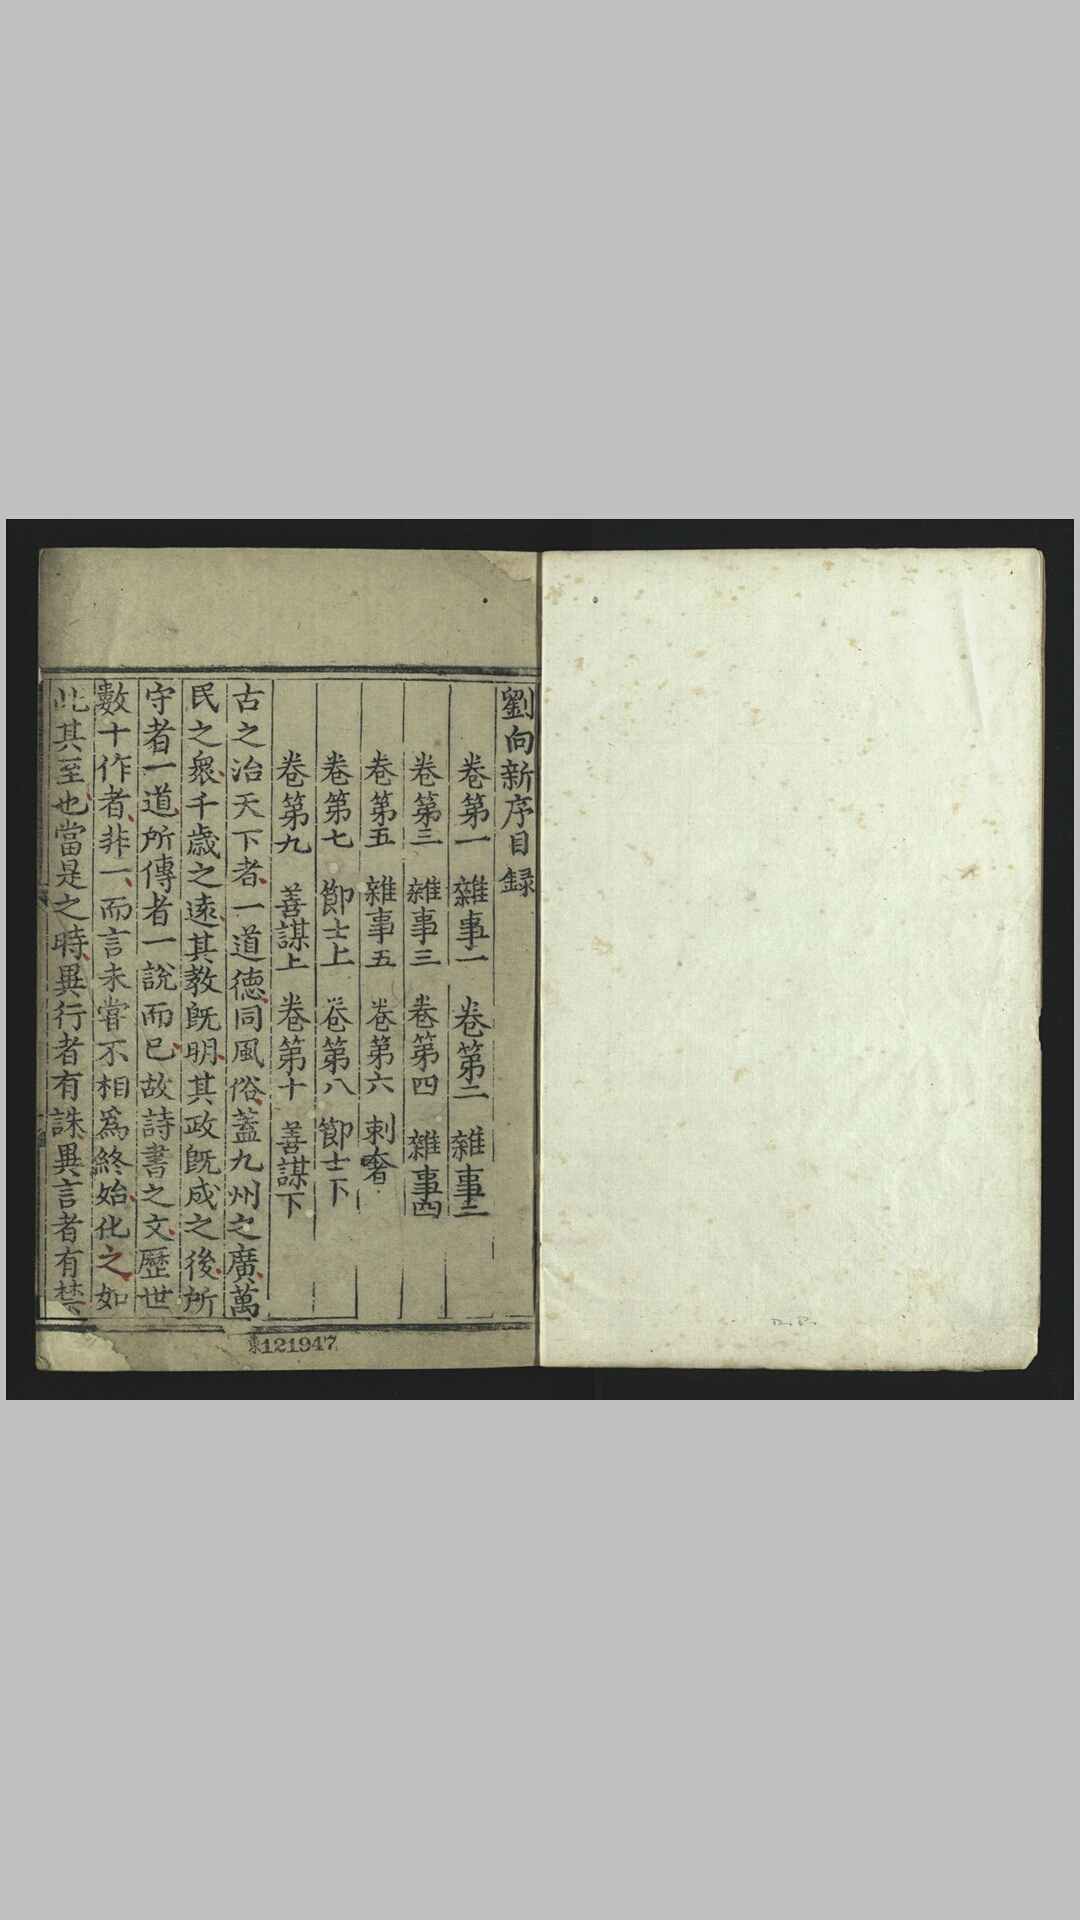 劉向新序目録
卷第一　雜事一　卷第二　雜事二
卷第三　雜事三　卷第四　雜事四
卷第五　雜事五　卷第六　刺奢
卷第七　節士上　卷第八　節士下
卷第九　善謀上　卷第十　善謀下
古之治天下者一道德同風俗蓋九州之廣萬
民之衆千歲之遠其教旣明其政旣成之後所
守者一道所傳者一說而已故詩書之文歷世
數十作者非一而言未嘗不相爲終始化之如
此其至也當是之時異行者有誅異言者有禁
東121947